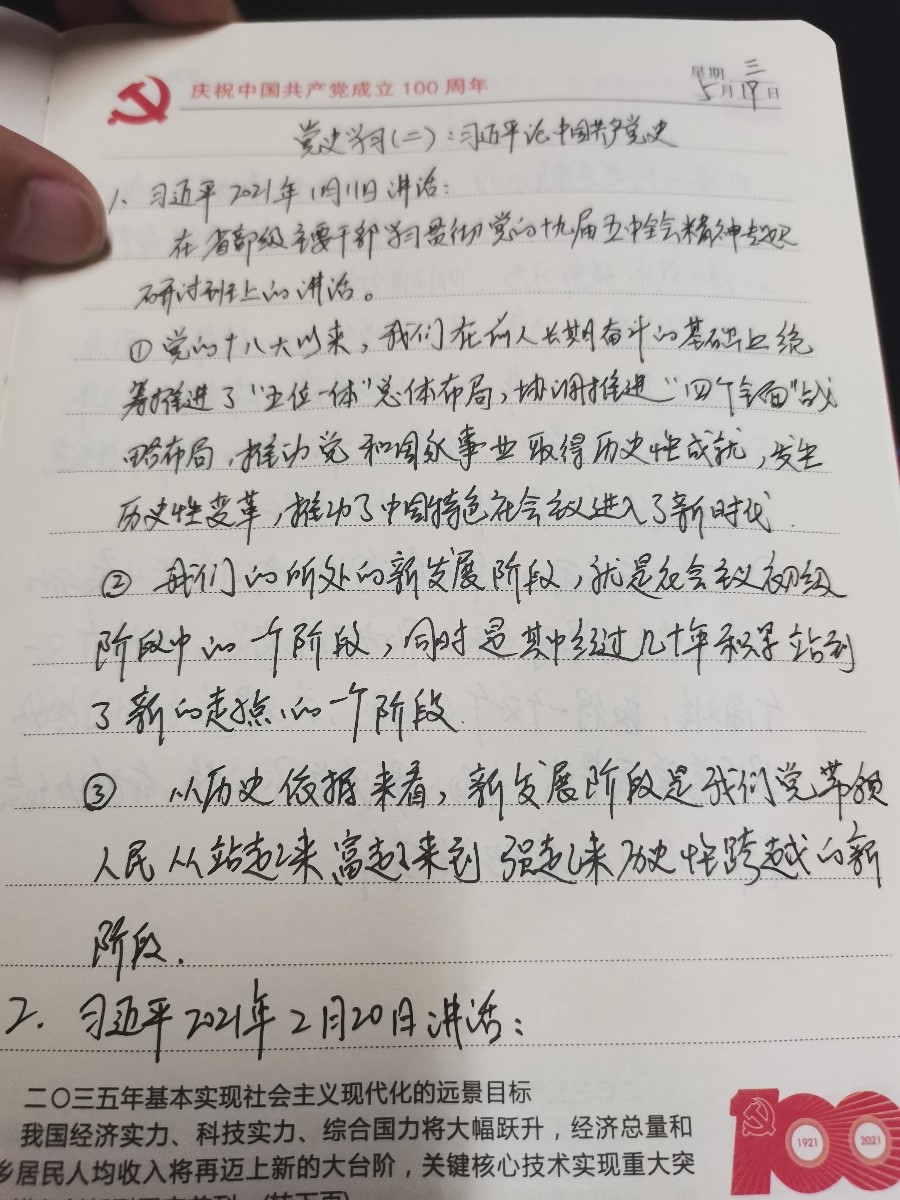 庆祝中国共产党成立100周年
星期三
5月19日
党史学习(二):习近平论中国共产党史
1、习近平2021年1月11日讲话:
在省部级主要干部学习贯彻党的十九届五中全会精神专题
研讨班上的讲话。
①党的十八大以来,我们在前人长期奋斗的基础上统
筹推进了“五位一体”总体布局,协调推进“四个全面”战
略布局,推动党和国家事业取得历史性成就,发生
历史性变革,推动了中国特色社会主义进入了新时代.
②我们的所处的新发展阶段,就是社会主义初级
阶段中的一个阶段,同时是其中经过几十年积累站到
了新的起点的一个阶段.
③从历史依据来看,新发展阶段是我们党带领
人民从站起来富起来到强起来历史性跨越的新
阶段.
2.习近平2021年2月20日讲话:
二〇三五年基本实现社会主义现代化的远景目标
我国经济实力、科技实力、综合国力将大幅跃升,经济总量和
乡居民人均收入将再迈上新的大台阶,关键核心技术实现重大突
(转下页)
100
1921
2021